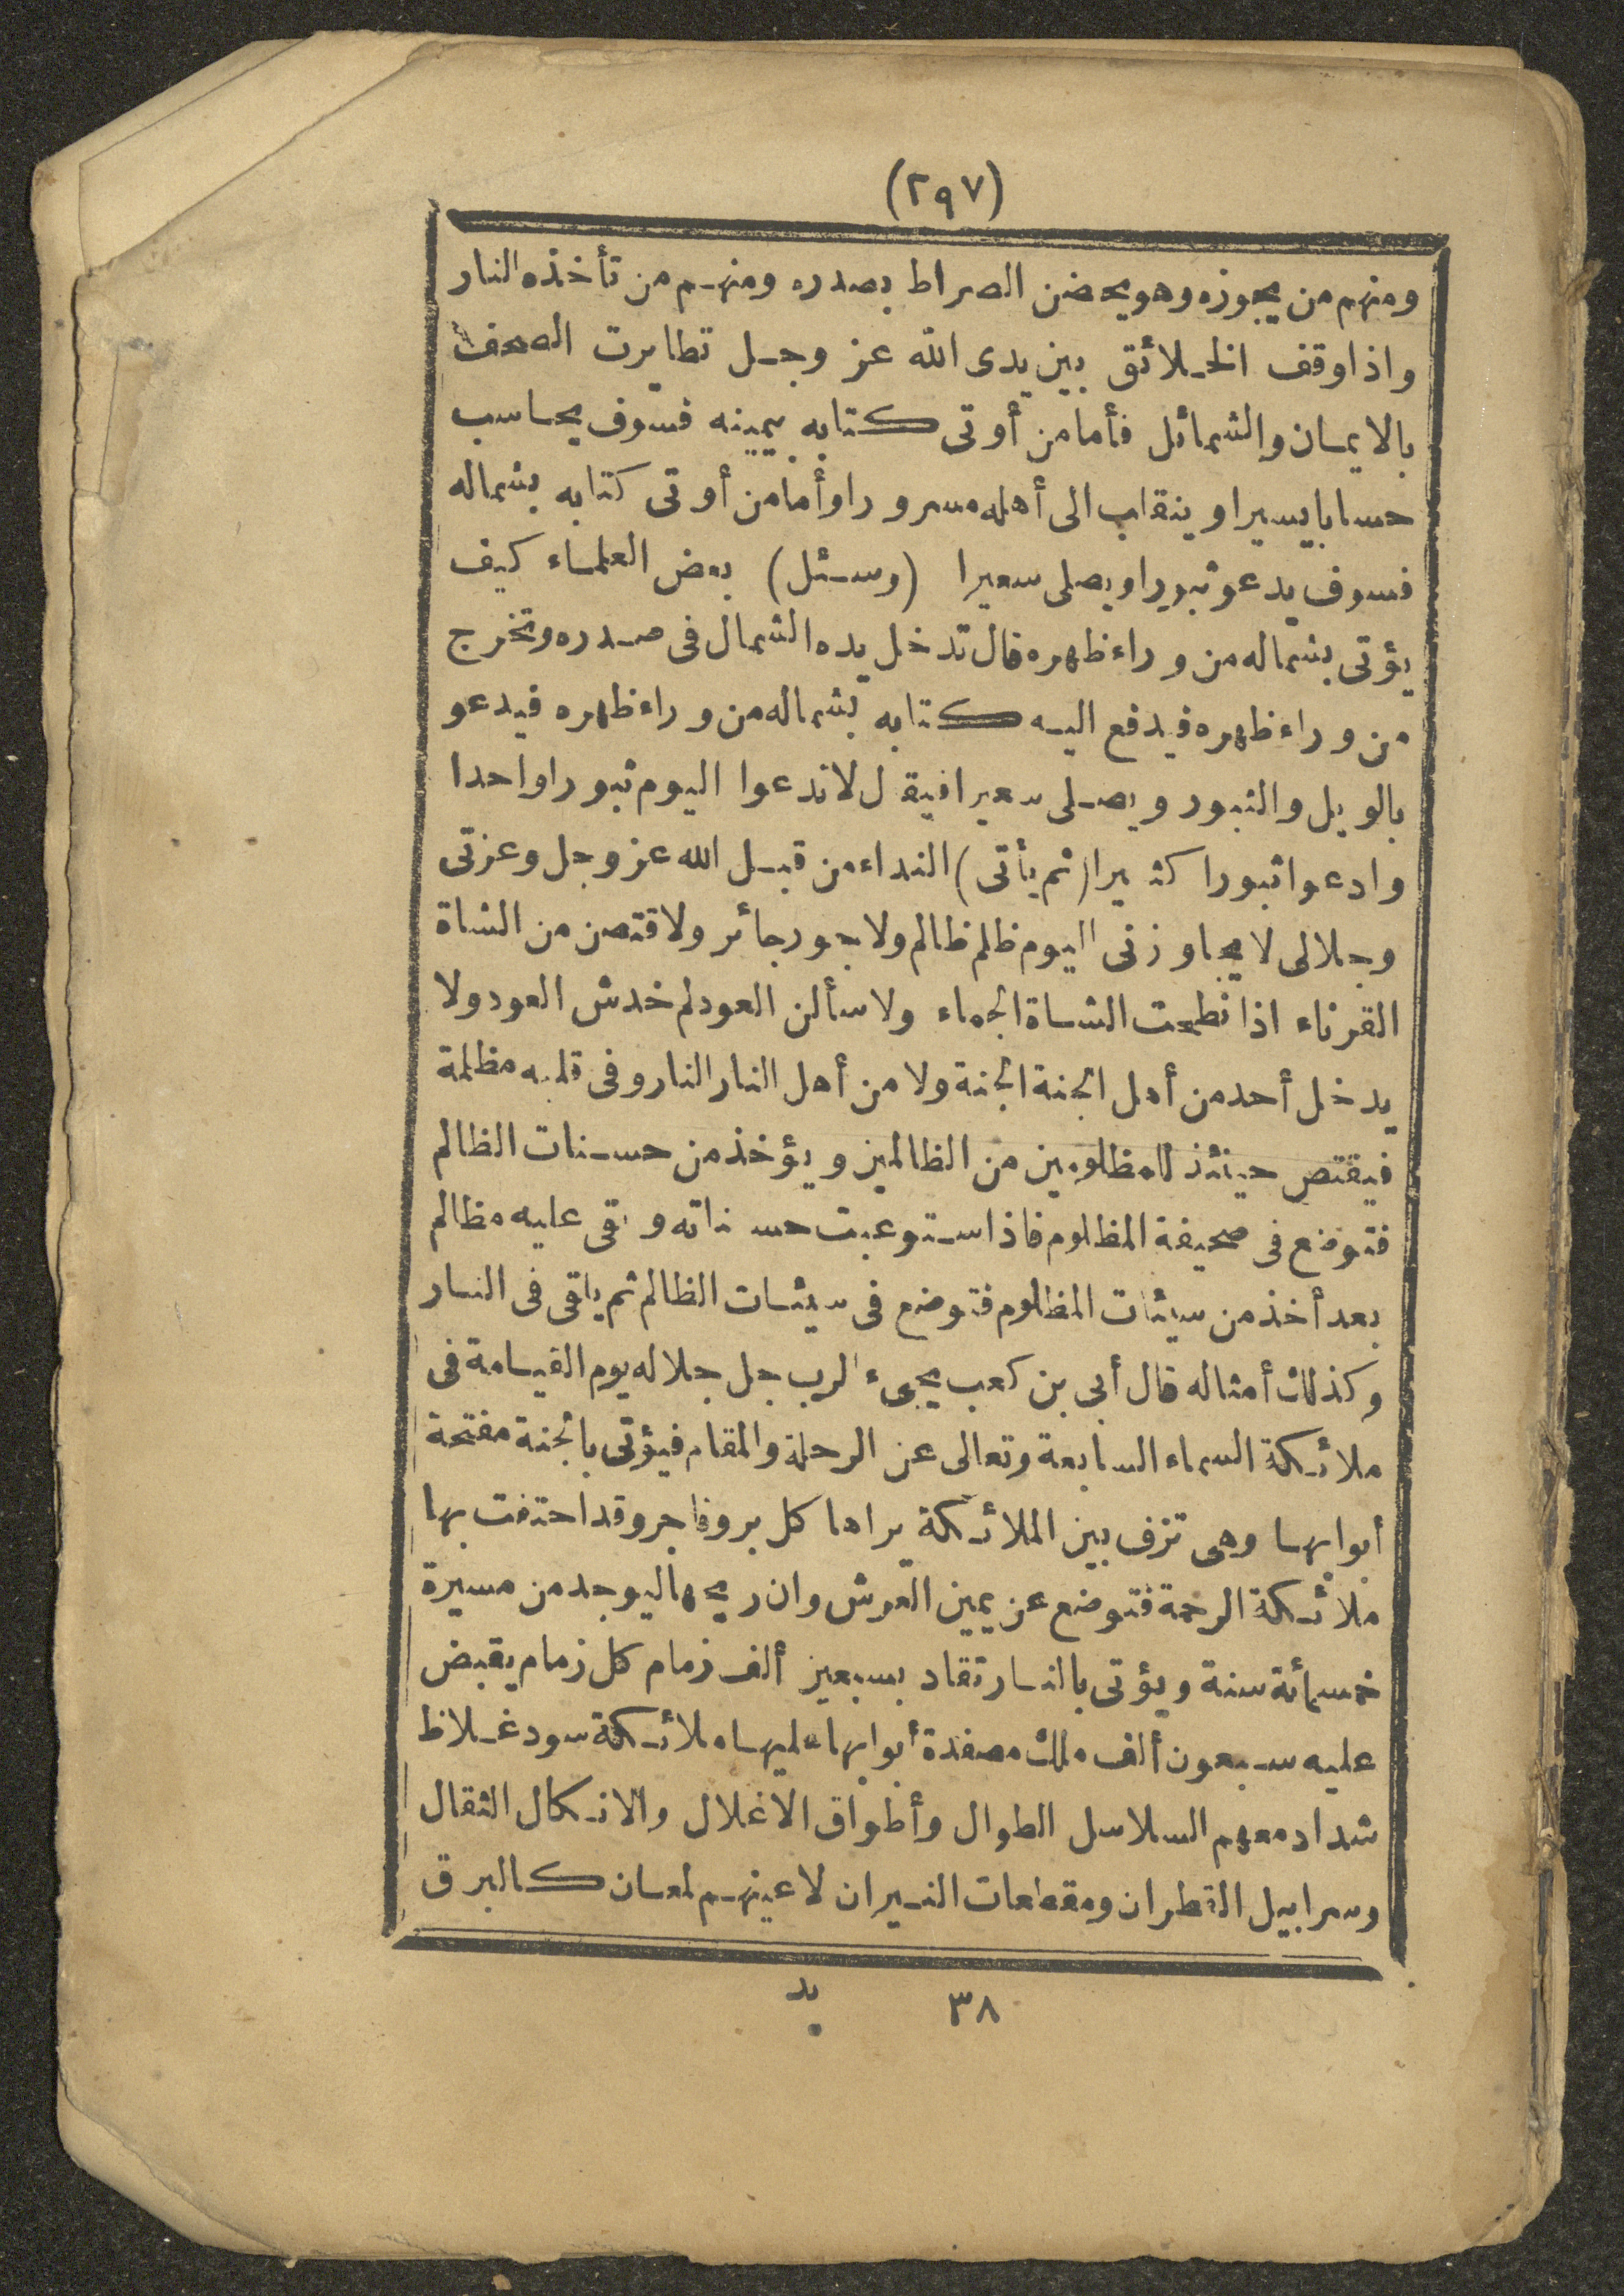 (٢٩٧)
ومنهم من يجوزه وهو يحضن الصراط بصدره ومنهم من تأخذه النار
واذا وقف الخلائق بين يدى الله عز وجل تطايرت الصحف
بالايمان والشمائل فأما من أوتى كتابه بيمينه فسوف يحاسب
حسابا يسيرا وينقلب الى أهله مسرورا وأما من أوتى كتابه بشماله
فسوف يدعو ثبورا ويصلى سعيرا (وسئل) بعض العلماء كيف
يؤتى بشماله من وراء ظهره قال تدخل يده الشمال فى صدره وتخرج
من وراء ظهره فيدفع اليه كتابه بشماله من وراء ظهره فيدعو
بالويل والثبور ويصلى سعيرا فيقال لا تدعوا اليوم ثبورا واحدا
وادعوا ثبورا كثيرا (ثم يأتى) النداء من قبل الله عز وجل وعزتى
وجلالى لا يجاوزنى اليوم ظلم ظالم ولا جور جائر ولاقتصن من الشاة
القرناء اذا نطحت الشاة الجماء ولاسألن العود لم خدش العود ولا
يدخل أحد من أهل الجنة الجنة ولا من أهل النار النار وفى قلبه مظلمة
فيقتص حينئذ للمظلومين من الظالمين ويؤخذ من حسنات الظالم
فتوضع فى صحيفة المظلوم فاذا استوعبت حسناته وبقى عليه مظالم
بعد أخذ من سيئات المظلوم فتوضع فى سيئات الظالم ثم يلقى فى النار
وكذلك أمثاله قال أبى بن كعب يجىء الرب جل جلاله يوم القيامة فى
ملائكة السماء السابعة وتعالى عن الرحلة والمقام فيؤتى بالجنة مفتحة
أبوابها وهى تزف بين الملائكة يراها كل بر وفاجر وقد احتفت بها
ملائكة الرحمة فتوضع عن يمين العرش وان ريحها ليوجد من مسيرة
خمسمائة سنة ويؤتى بالنار تقاد بسبعين ألف زمام كل زمام يقبض
عليه سبعون ألف ملك مصفدة أبوابها عليها ملائكة سود غلاظ
شداد معهم السلاسل الطوال وأطواق الاغلال والانكال الثقال
وسرابيل القطران ومقطعات النيران لاعينهم لمعان كالبرق
٣٨ يد